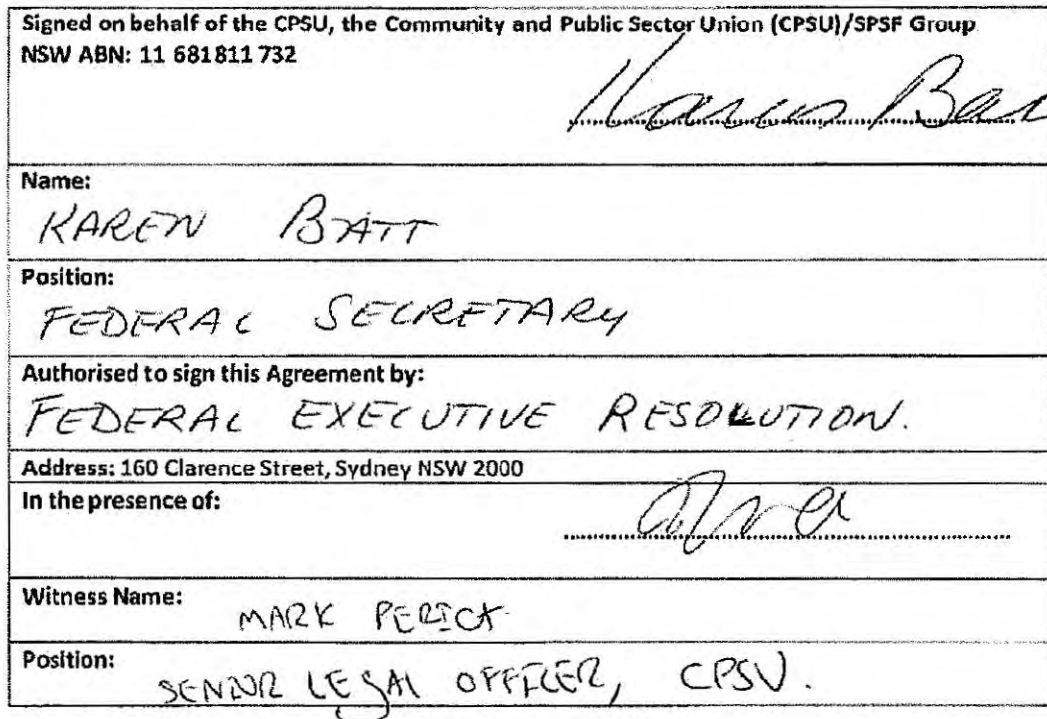 Signed on behalf of the CPSU, the Community and Public Sector Union (CPSU)/SPSF Group
NSW ABN: 11 681811 732
Karen Bat
Name:
KAREN BATT
Position:
FEDERAL SECRETARY
Authorised to sign this Agreement by:
FEDERAL EXECUTIVE RESOLUTION.
Address: 160 Clarence Street, Sydney NSW 2000
In the presence of:
Witness Name:
MARK PERICA
Position:
SENIOR LEGAL OFFICER, CPSU.